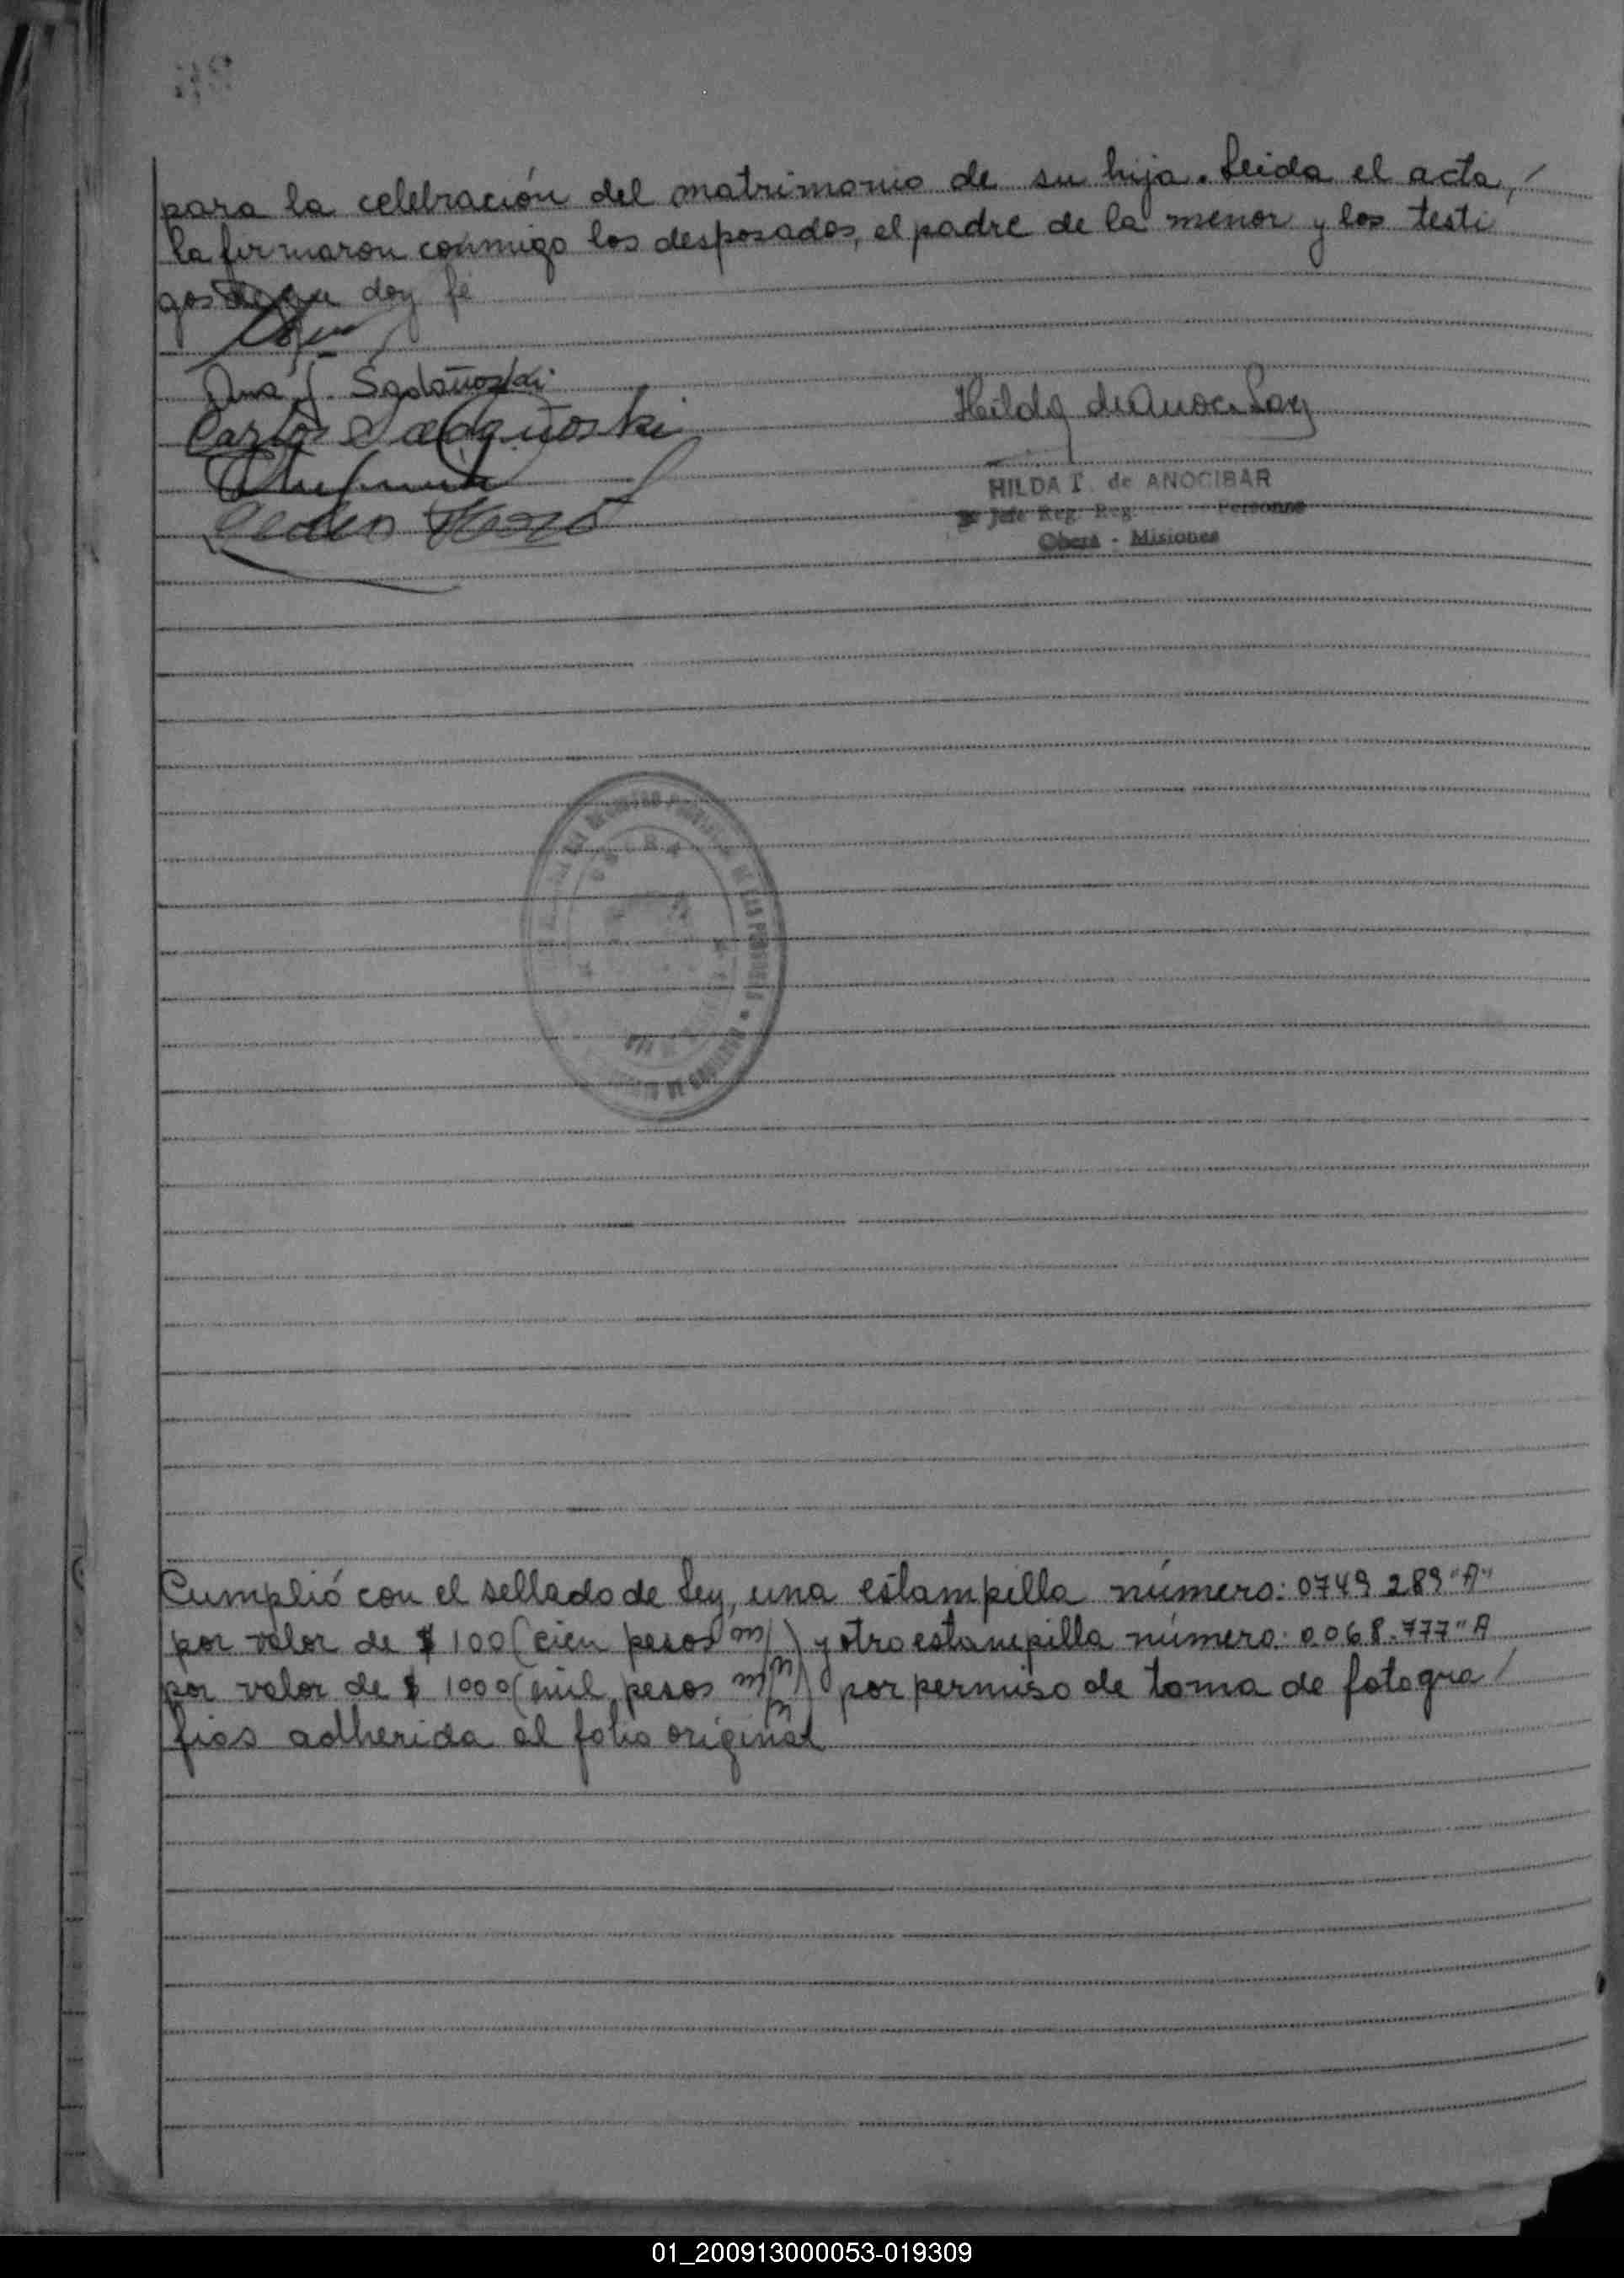 para la celebración del matrimonio de su hija. Leida el acta, /
la firmaron conmigo los desposados, el padre de la menor y los testi
gos de que doy fé
Ana J. Sadañoski
Carlos Sadañoski
Hilda de Anocibar
HILDA T. de ANOCIBAR
Jefe Reg. Personas
Oberá - Misiones
Cumplió con el sellado de Ley, una estampilla número: 0749 289 "A"
por valor de $ 100 (cien pesos m/n) y otra estampilla número: 0068.777 "A
por valor de $ 1000 (mil pesos m/n) por permiso de toma de fotogra /
fias adherida al folio original
01_200913000053-019309